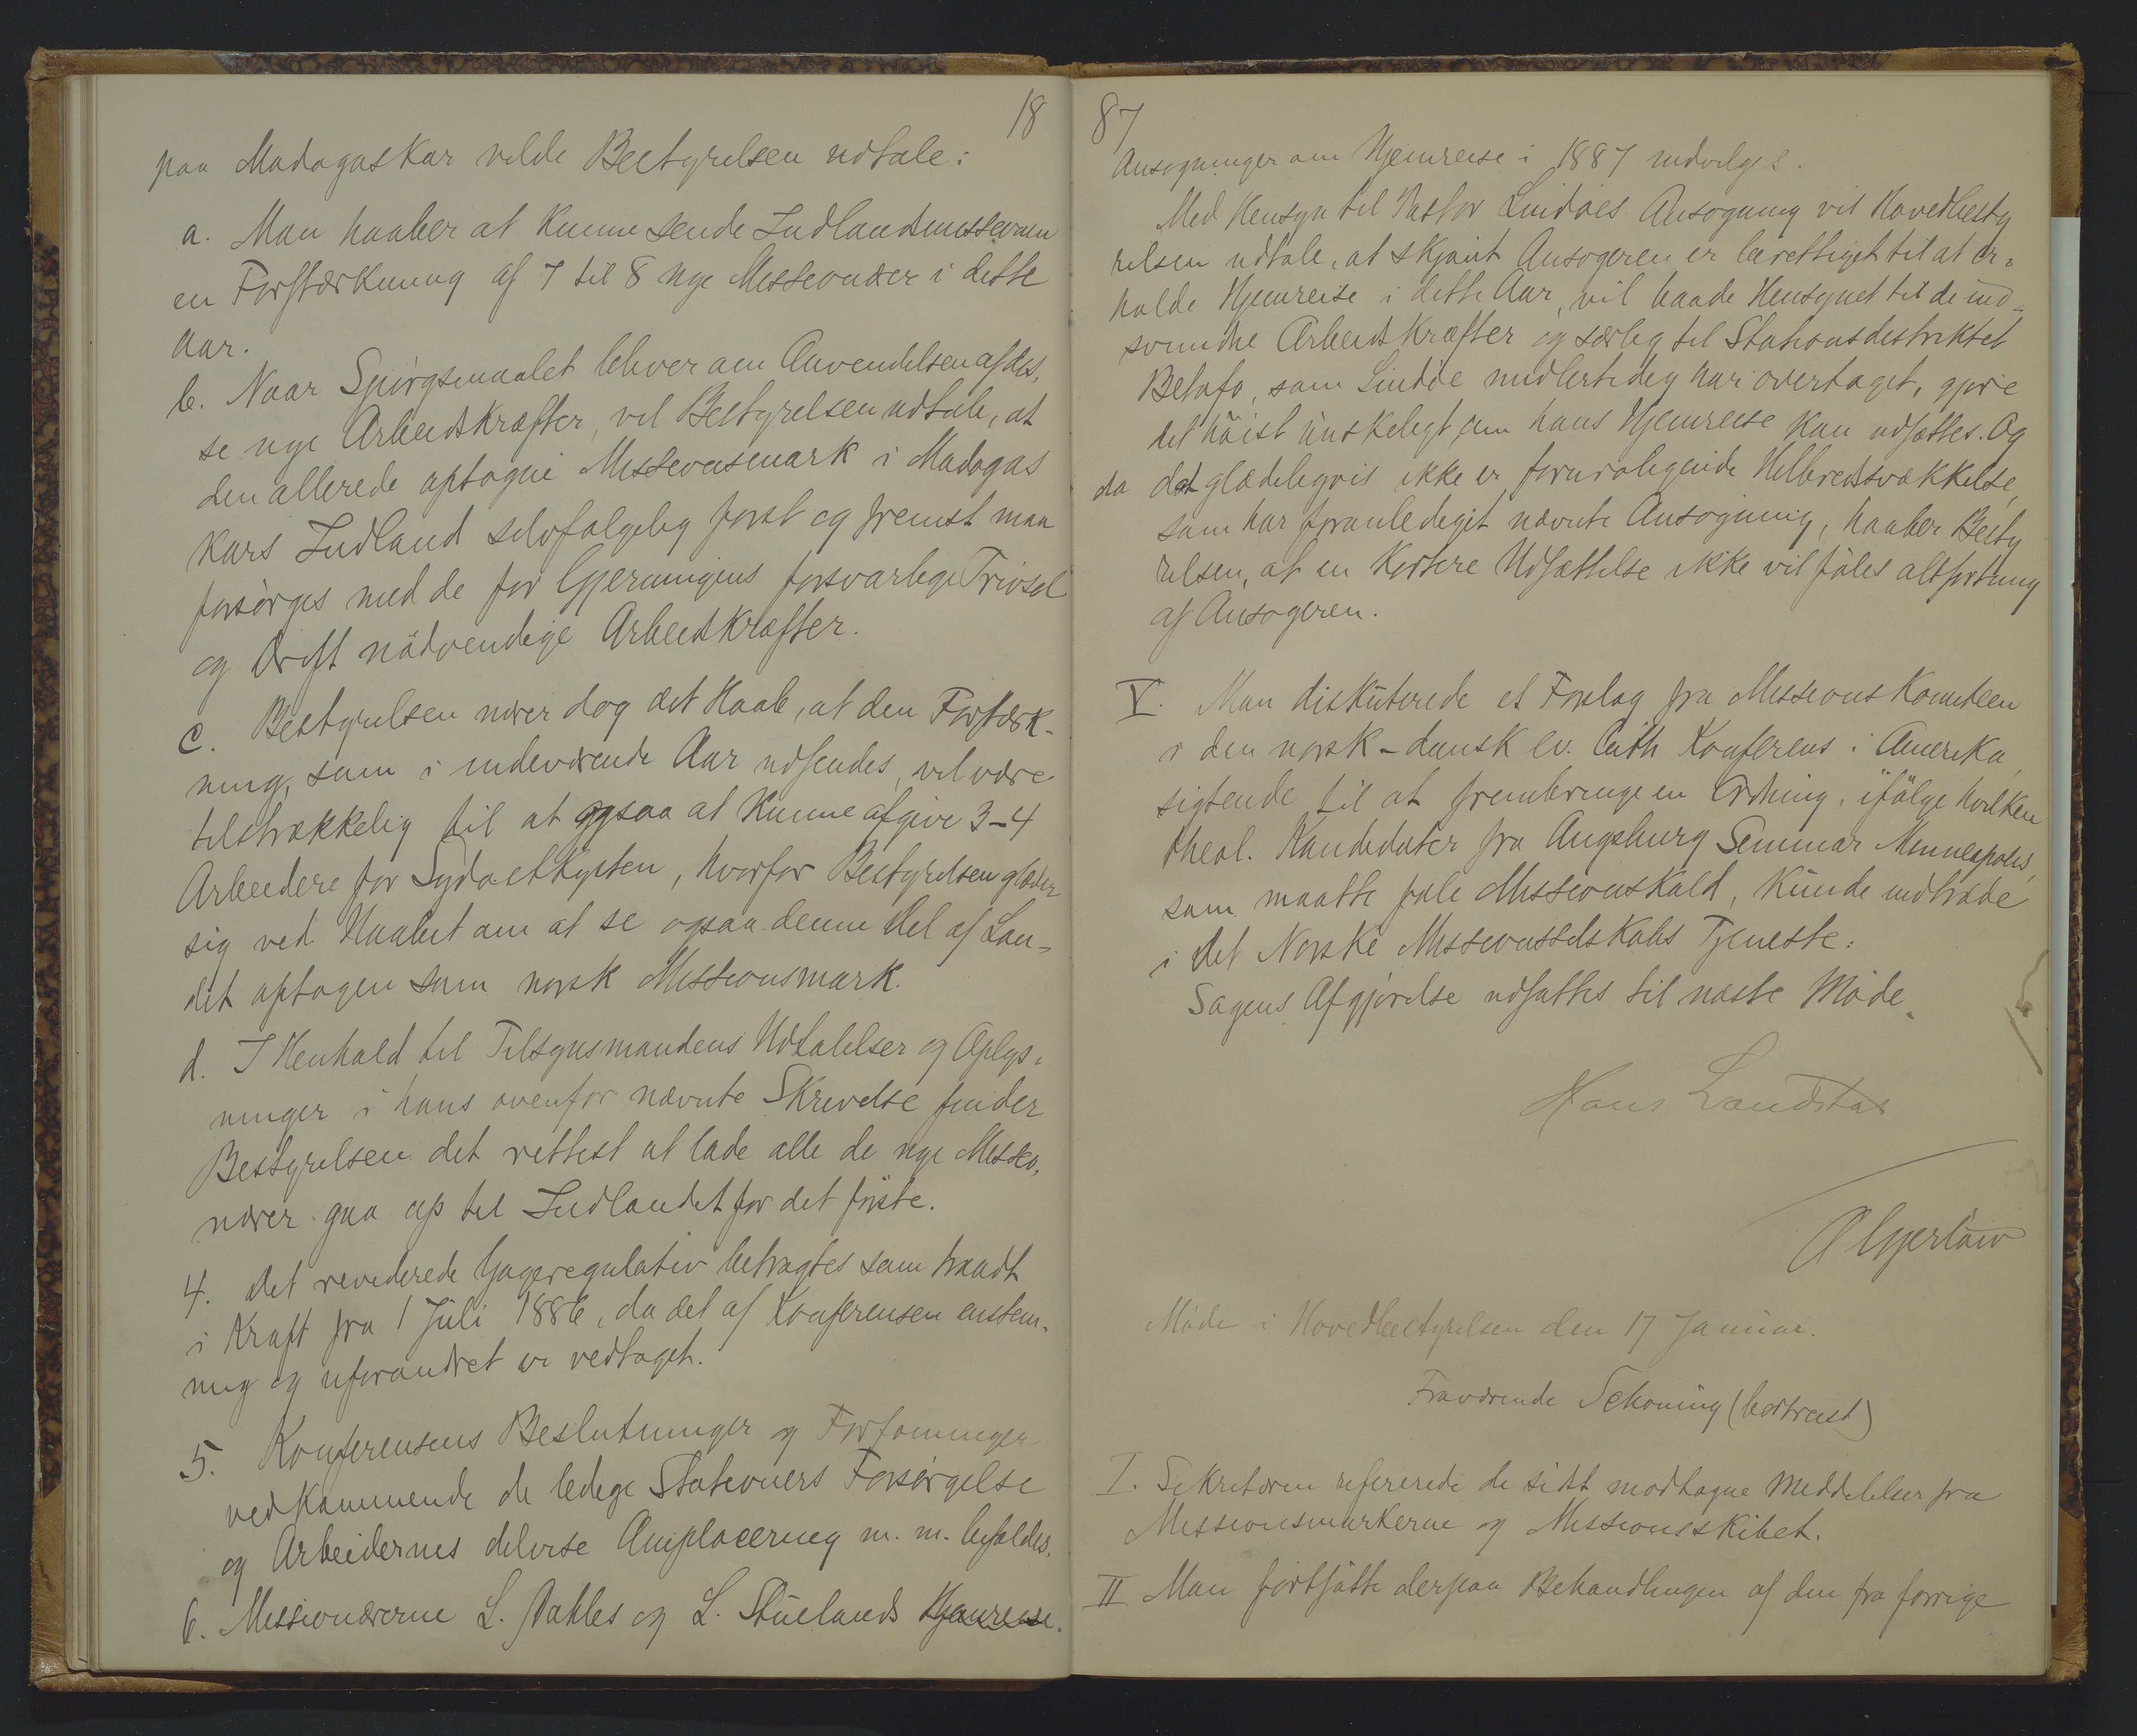 18
paa Madagaskar vilde Bestyrelsen udtale:
a. Man haaber at kunne sende Indlandsmissionen
en Forstærkning af 7 til 8 nye Missionærer i dette
Aar.
b. Naar Spörgsmaalet bliver om Anvendelsen af dis,
se nye Arbeidskræfter, vil Bestyrelsen udtale, at
den allerede optagne Missionsmark i Madagas
kars Indland selvfølgelig först og fremst maa
forsörges med de for Gjerningens forsvarlige Trivsel
og Drift nödvendige Arbeidskræfter.
c. Bestyrelsen nærer dog det Haab, at den Forstærk-
ning, som i indeværende Aar udsendes, vil være
tilstrækkelig til at ogsaa at kunne afgive 3-4
Arbeidere for Sydostkysten, hvorfor Bestyrelsen glæder
sig ved Haabet om at se ogsaa denne Del af Lan=
det optagen som norsk Missionsmark.
d. I Henhold til Tilsynsmandens Udtalelser og Oplys,
ninger i hans ovenfor nævnte Skrivelse finder
Bestyrelsen det rettest at lade alle de nye Missio,
nærer gaa op til Indlandet for det förste.
4. Det reviderede Gageregulativ betragtes som traadt
i Kraft fra 1 Juli 1886, da det af Konferensen enstem,
mig og uforandret er vedtaget.
5. Konferensens Beslutninger og Forføininger
vedkommende de ledige Stationers Forsörgelse
og Arbeidernes delvise Omplacering m. m. bifaldes.
6. Missionærerne L. Dahles og L. Stuelands Hjemreise.
87
Ansøgninger om Hjemreise i 1887 indvilges.
Med Hensyn til Pastor Lindøes Ansøgning vil Hovedbesty
relsen udtale, at skjønt Ansøgeren er berettiget til at er=
holde Hjemreise i dette Aar, vil baade Hensynet til de ind=
svundne Arbeidskræfter og særlig til Stationsdistriktet
Betafo, som Lindøe midlertidig har overtaget, gjøre
det höist ünskeligt, om hans Hjemreise kan udsættes. Og
da det glædeligvis ikke er foruroligende Helbredssvækkelse,
som har foranlediget nævnte Ansøgning, haaber Besty
relsen, at en kortere Udsættelse ikke vil föles altfortung
af Ansøgeren.
V. Man diskúterede et Forslag fra Missionskomiteen
i den norsk-dansk ev. luth Konferens i Amerika,
sigtende til at frembringe en Ordning, ifölge hvilken
theol. Kandidater fra Augsburg Seminar Minneapolis,
som maatte föle Missionskald, kúnde indtræde
i det Norske Missionsselskabs Tjeneste.
Sagens Afgjörelse udsattes til næste Möde.
Hans Landstad
A Gjerløw
Möde i Hovedbestyrelsen den 17 Januar.
Fraværende Schøning (bortreist)
I. Sekretæren refererede de sidst modtagne Meddelelser fra
Missionsmarkerne og Missionsskibet.
II Man fortsatte derpaa Behandlingen af den fra forrige